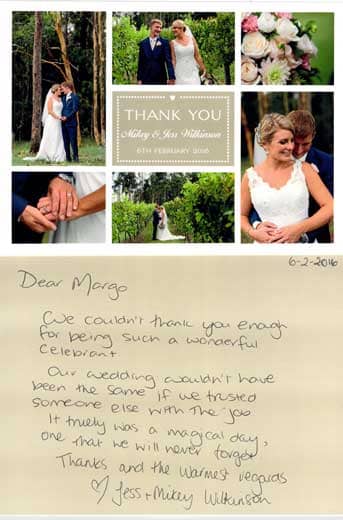 THANK YOU
Mikey & Jess Wilkinson
6TH FEBRUARY 2016
6-2-2016
Dear Margo
We couldn't thank you enough
for being such a wonderful
Celebrant
Our wedding wouldn't have
been the same if we trusted
someone else with the job
It truely was a magical day,
one that we will never forget
Thanks and the warmest regards
♡ Jess + Mikey Wilkinson